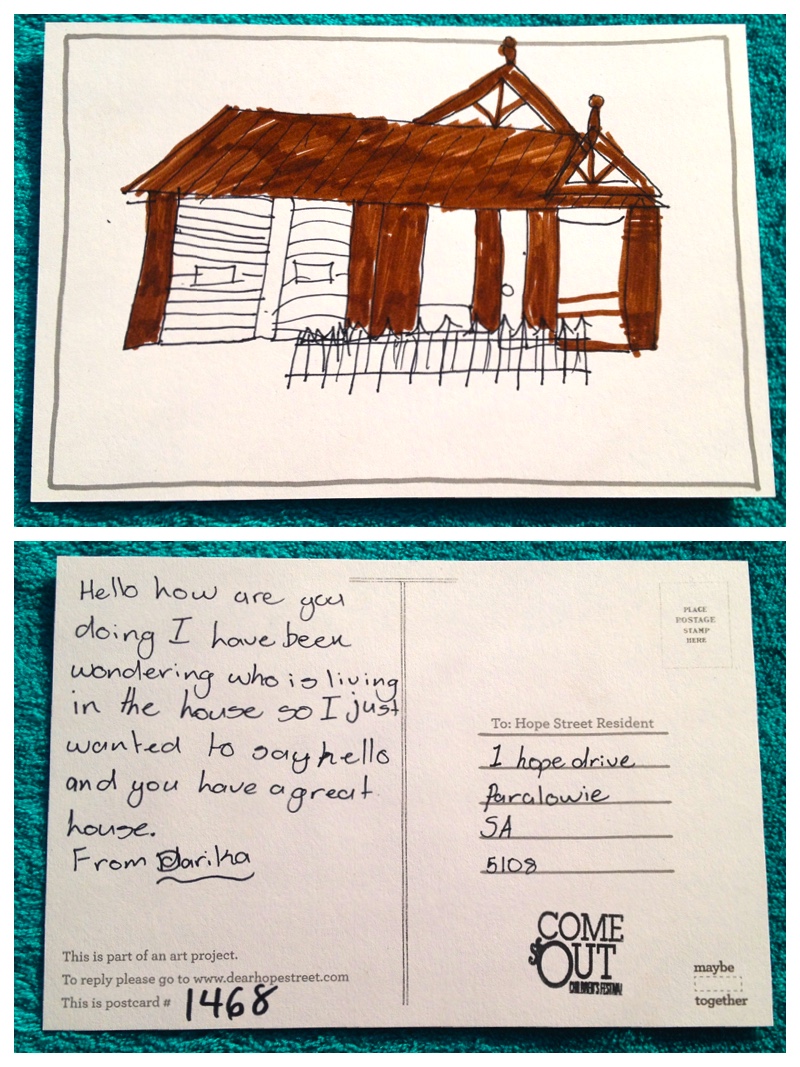 Hello how are you
doing I have been
wondering who is living
in the house so I just
wanted to say hello
and you have a great
house.
From Darika
This is part of an art project.
To reply please go to www.dearhopestreet.com
This is postcard # 1468
PLACE
POSTAGE
STAMP
HERE
To: Hope Street Resident
1 hope drive
Paralowie
SA
5108
COME
OUT
CHILDREN'S FESTIVAL
maybe
together